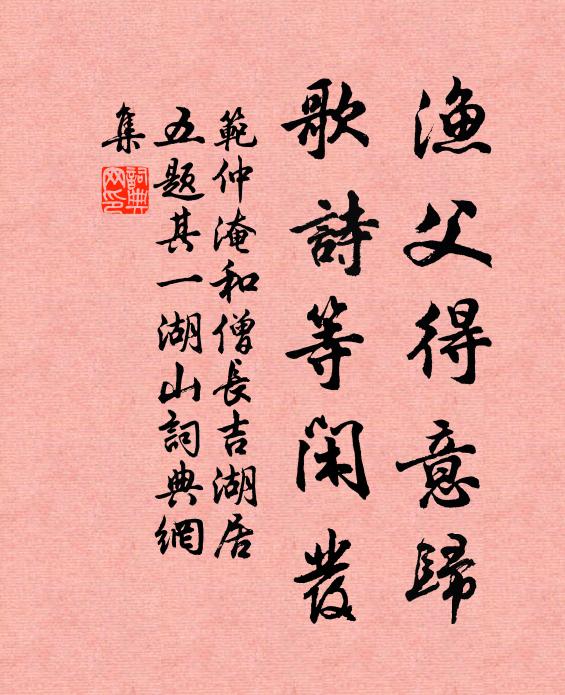 漁父得意歸
歌詩等閑發
範仲淹和僧長吉湖居
五題其一湖山詞典網
集
詞典網印